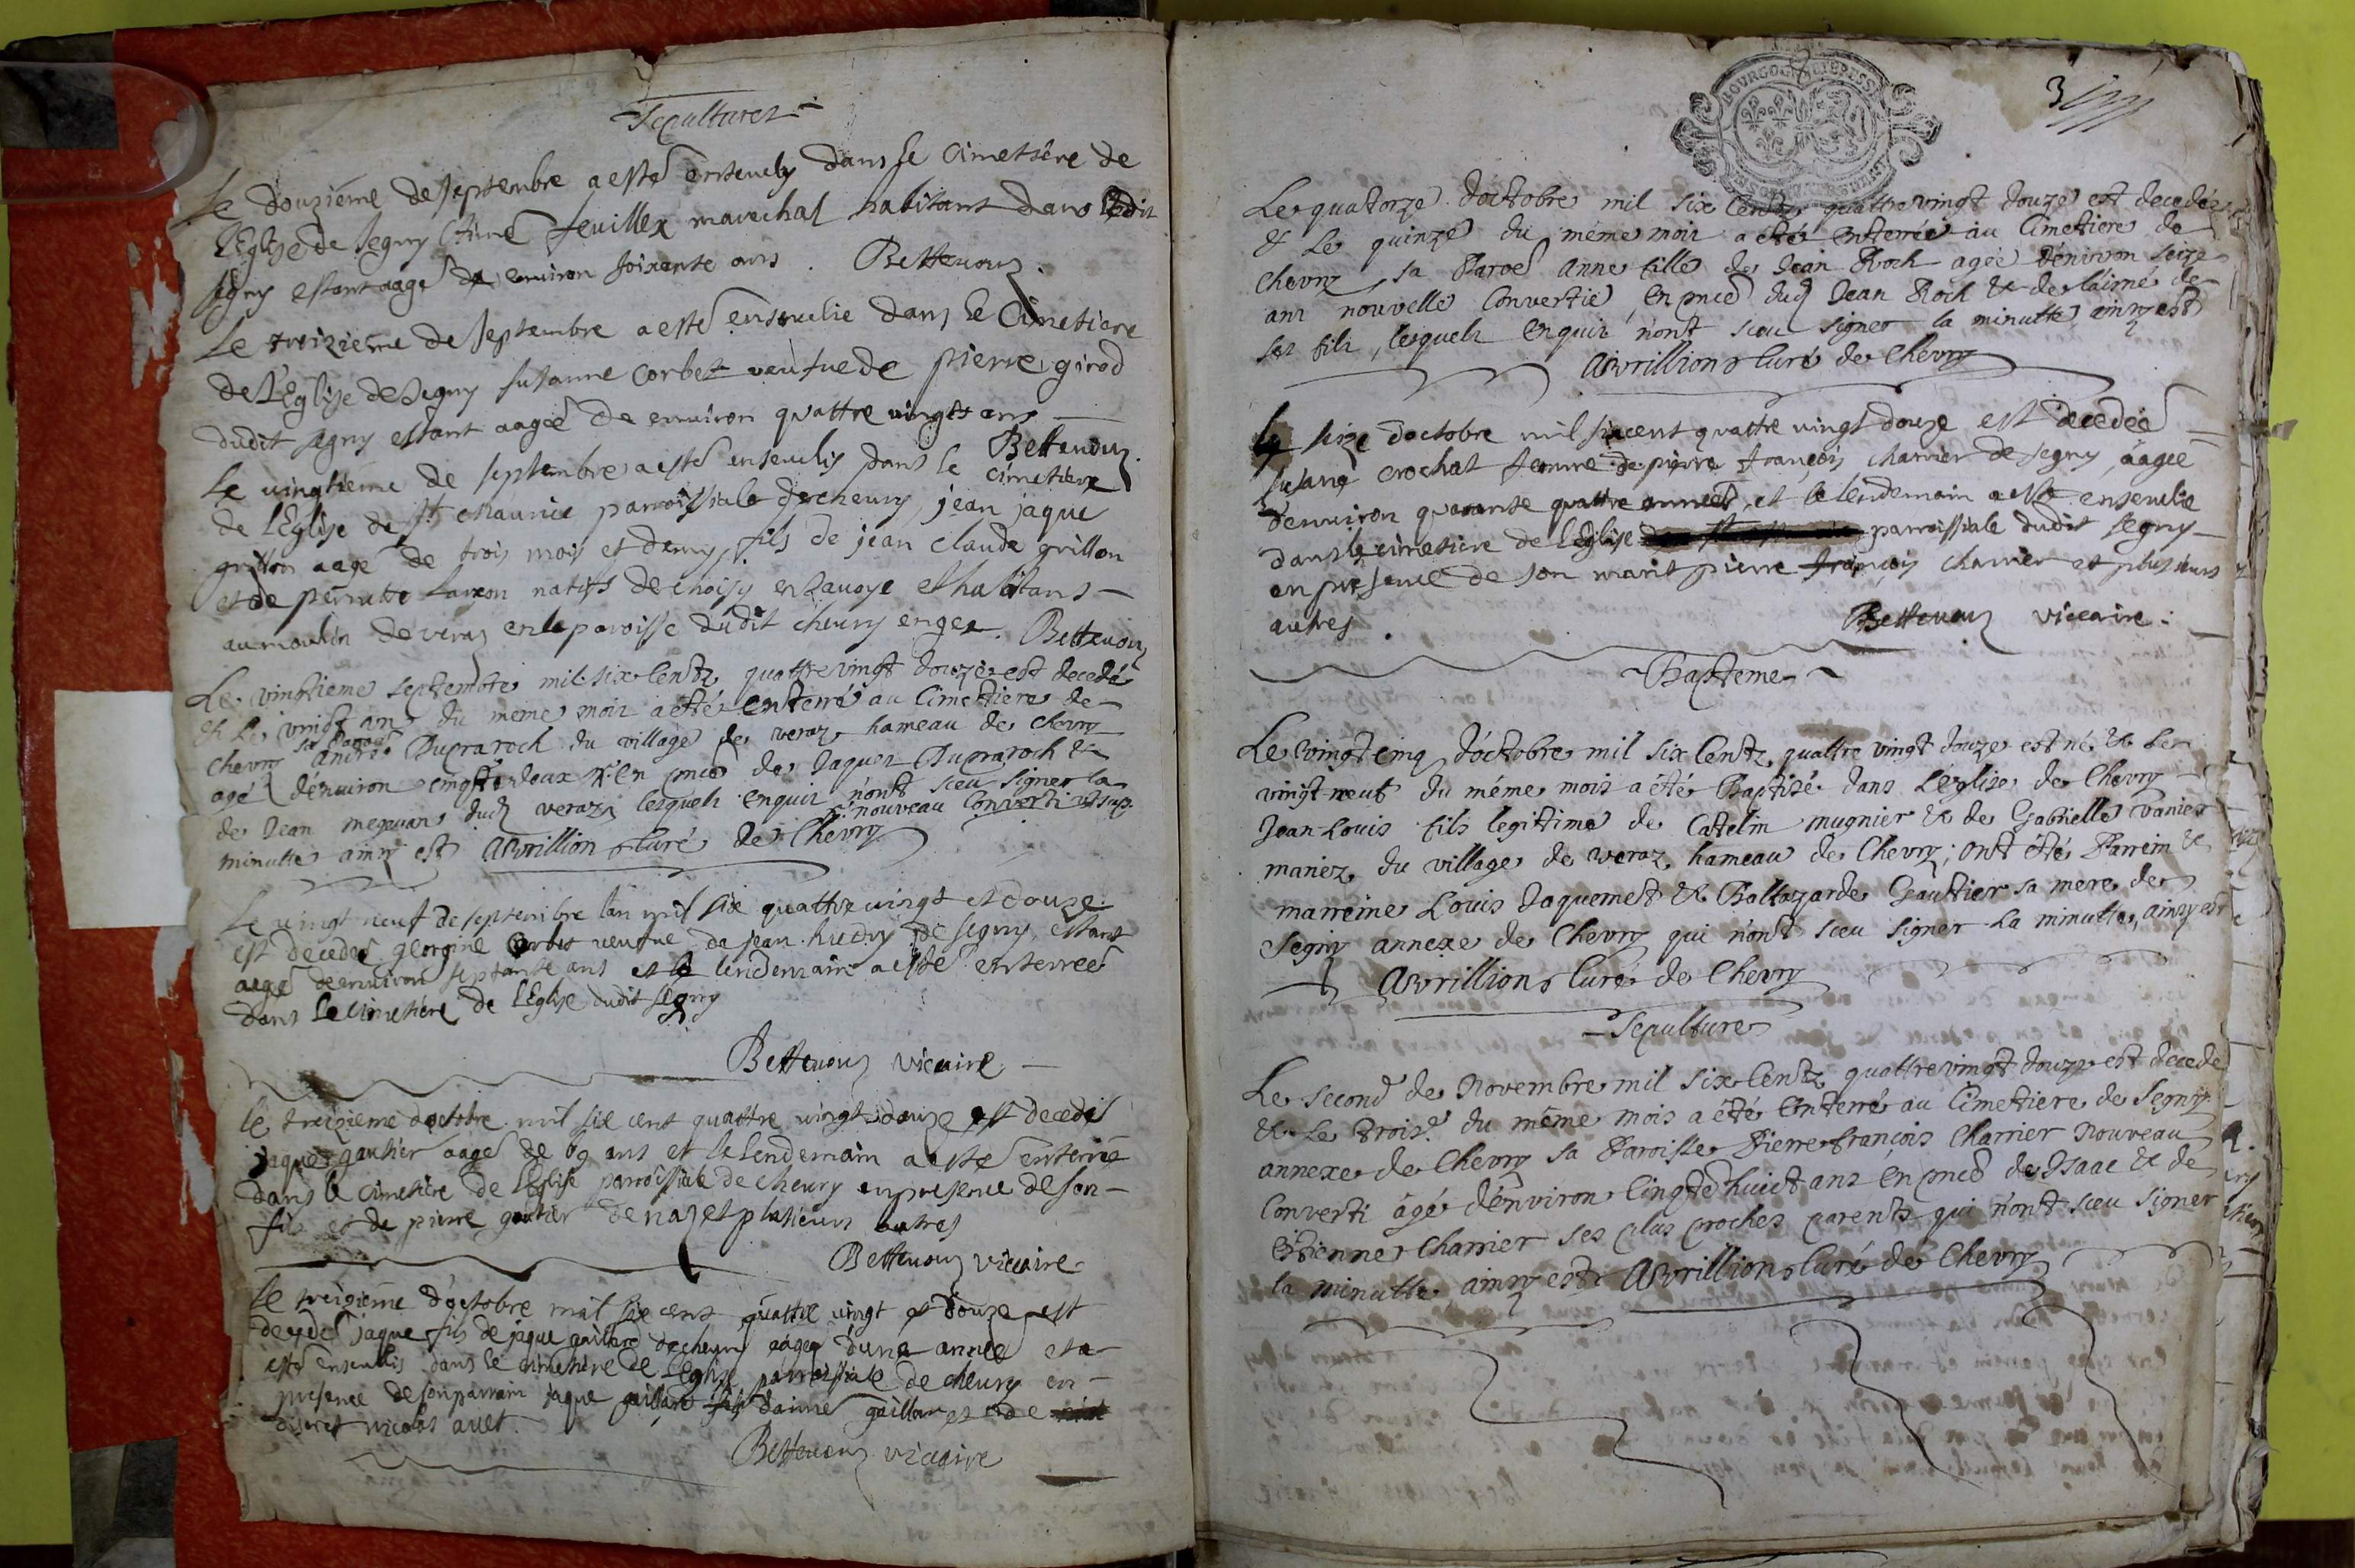 Sepultures
Le douzieme de septembre a esté ensevely dans le cimetiere de
l'Eglise de Segny feuillex marechal habitant dans ledit
segny estant aagé de environ soixante ans. Bettevouz.
Le treizieme de septembre a esté ensevelie dans le Cimetiere
de l'Eglise de Segny susanne Corbet veufve de pierre girod
dudit segny estant aagée de environ quattre vingts ans
Bettevouz.
Le vingtieme de septembre a esté ensevelis dans le cimetiere
de l'Eglise de St Maurice parroissiale de chevry, jean jaque
grillon aagé de trois mois et demy, fils de jean claude grillon
et de pernatte natifs de choisy en savoye et habitans
au moulin de veraz en la paroisse dudit chevry en gex. Bettevouz
Le vingtieme septembre mil six Centz quattrevingt douze est decedé
& Le vingt an du meme mois a été enterré au Cimetiere de
Chevry sa Paroe André Dupraroch du village de veraz hameau de Chevry
agé d'environ cinqte deux en pnce de Jaques Dupraroch &
de Jean dud veraz, lesquels enquis n'ont sceu signer la
nouveau Converti
minutte ainsy est Avrillion Curé de Chevry
Le vingt neuf de septembre lan mil six quattre vingt et douze
est decedeé georgine Corbet veufve de jean hudry de segny, estant
aagé de environ septante ans et le lendemain a esté enterreé
dans le cimetiere de l'Eglise dudit segny
Bettevouz vicaire
Le treizieme doctobre mil six cent quattre vingt douze est decedé
jaque gautier aagé de 69 ans et le lendemain a esté enterré
dans le cimetiere de l'Eglise parroissiale de chevry en presence de son
fils et de pierre gautier de naz et plusieurs autres
Bettevouz viccaire
Le treizieme d'octobre mil six cent quattre vingt et douze est
decedé jaque fils de jaque gaillard de chevry aagé d'une anneé et a
esté ensevelis dans le cimetiere de l'Eglise parroissiale de chevry en
presence de son parrain jaque gaillard fils daimé gaillard et de
discret nicolas avet.
Bettevouz viccaire
3
BOURGOGNE ET BRESSE
Le quatorze d'octobre mil six Centz quattrevingt douze est decedée
& Le quinze du même mois a été enterrée au Cimetiere de
Chevry sa Paroe Anne fille de Jean Roch agée d'environ seize
ans nouvelle Convertie, en pnce dud Jean Roch & de l'aimé de
ses fils, lesquels enquis n'ont sceu signer la minutte ainsy est
Avrillion Curé de Chevry
Le seize doctobre mil six cent quattre vingt douze est decedée
susane crochat femme de pierre françois charrier de segny aagée
d'environ quarante quattre années, et le lendemain a esté ensevelie
dans le cimetiere de l'Eglise parroissiale dudit segny
en presence de son marit pierre françois charrier et plusieurs
autres.
Bettevouz viccaire.
Bapteme
Le vingt cinq d'octobre mil six Centz quattre vingt douze est né & Le
vingt neuf du même mois a été Baptisé dans L'église de Chevry
Jean-Louis fils legitime de Catelin mugnier & de Gabrielle vanier
mariez du village de veraz hameau de Chevry; ont été Parrein &
marreine Louis Jaquemet & Baltazarde Gautier sa mere de
Segny annexe de Chevry qui n'ont sceu signer la minutte, ainsy est
Avrillion Curé de Chevry
Sepulture
Le second de Novembre mil six Centz quattrevingt douze est decedé
& Le Troise du même mois a été enterré au Cimetiere de Segny
annexe de Chevry sa Paroisse Pierre françois Charrier Nouveau
Converti âgé d'environ Cinqte huict ans en pnce de Isaac & de
Etienne Charrier ses plus proches parents qui n'ont sceu signer
la minutte, ainsy est Avrillion Curé de Chevry